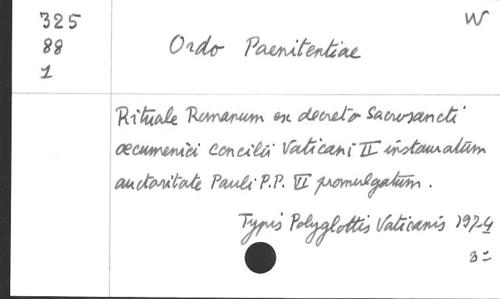 325
W
88
Ordo Paenitentiae
1
Rituale Romanum ex decreto Sacrosancti
oecumenici Concilii Vaticani II instauratum
auctoritate Pauli P.P. VI promulgatum.
Typis Polyglottis Vaticanis 1974
8=